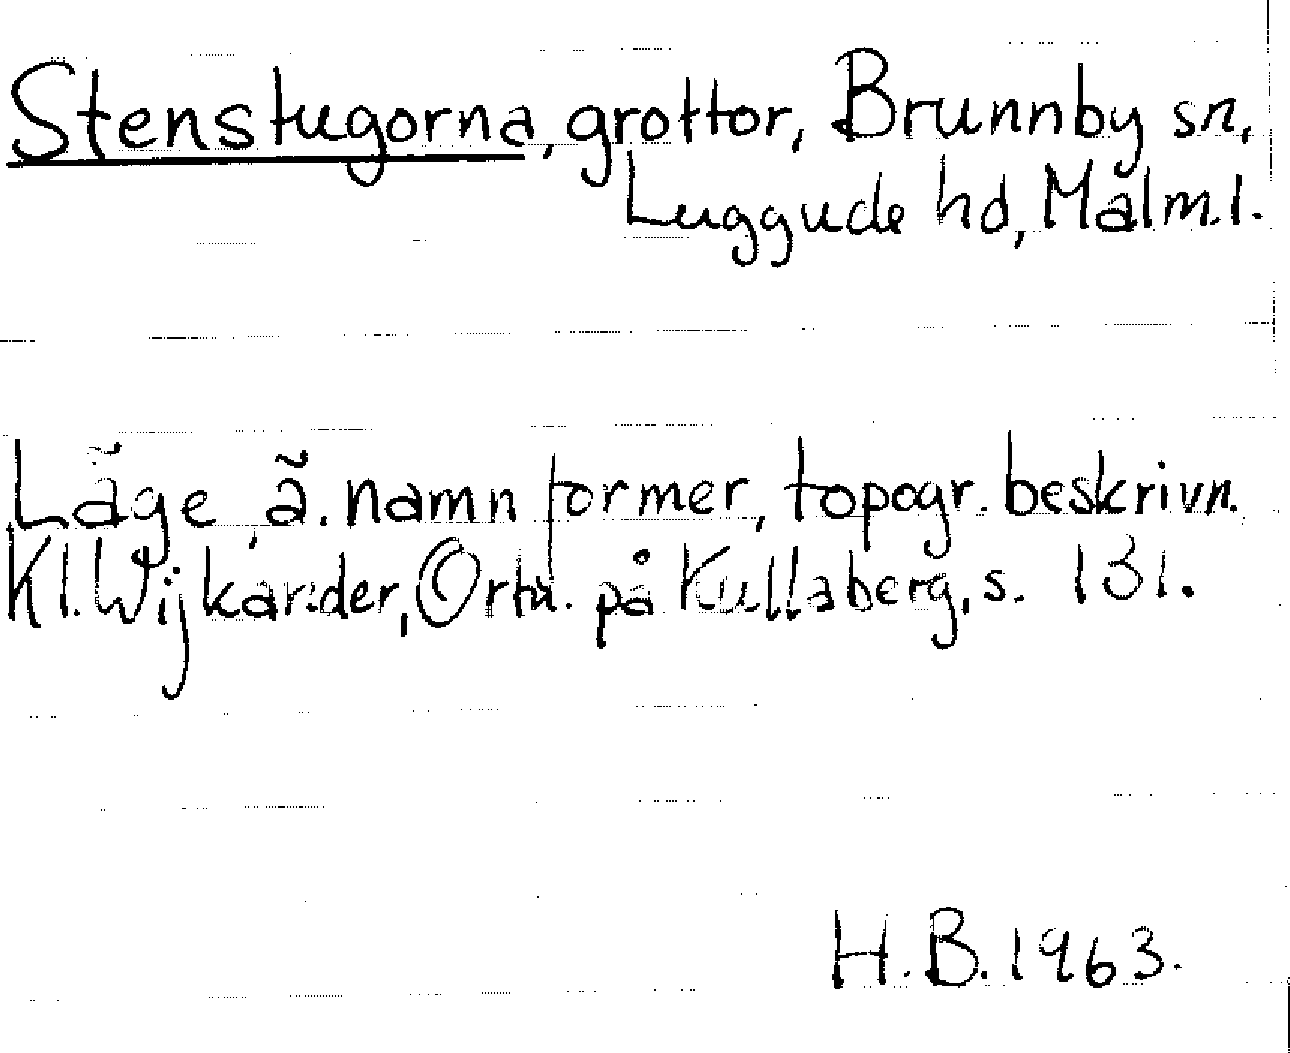 Stenstugorna, grottor, Brunnby sn,
Luggude hd, Malm.l.
Läge, ä. namnformer, topogr. beskrivn.
Kl. Wijkander, Ortn. på Kullaberg, s. 131.
H.B. 1963.